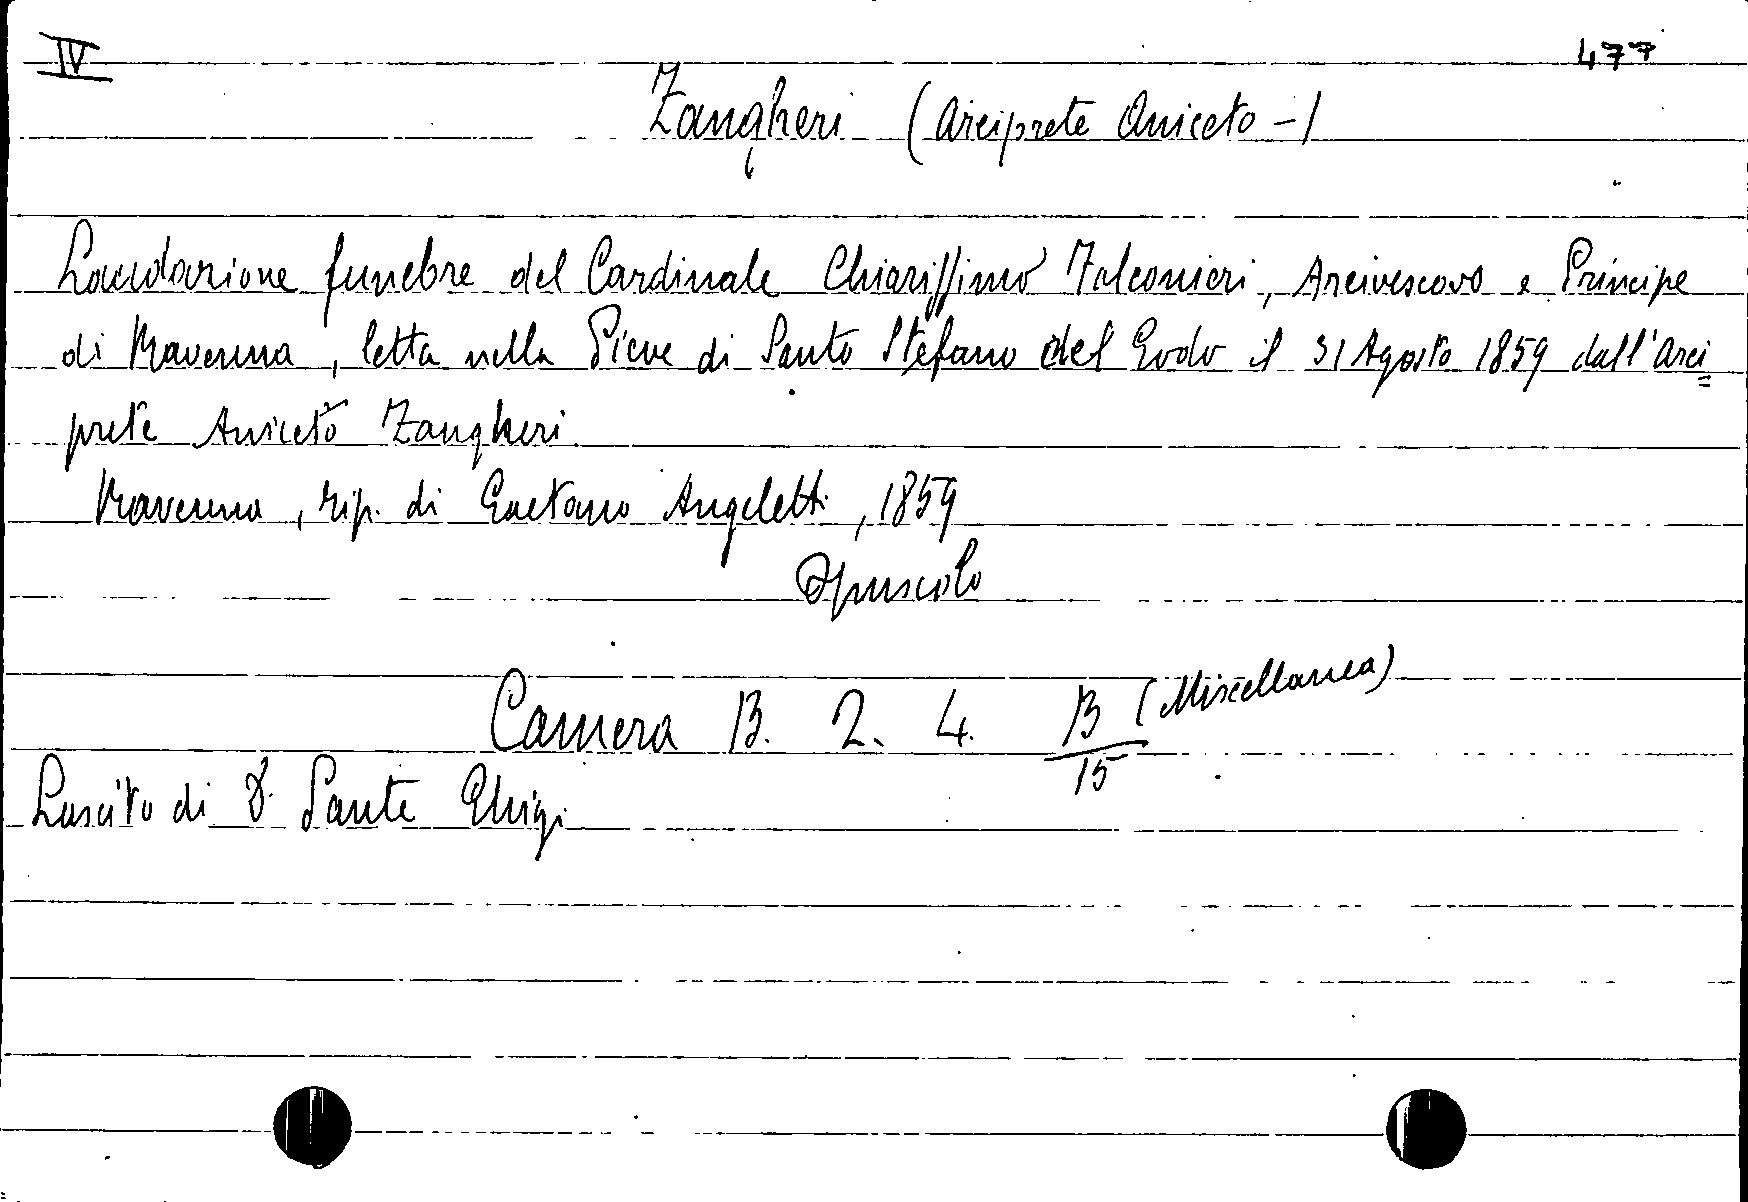 IV 477
Zangheri (Arciprete Aniceto -)
Laudazione funebre del Cardinale Chiarissimo Falconieri, Arcivescovo e Principe
di Ravenna, letta nella Pieve di Santo Stefano del Godo il 31 Agosto 1859 dall'Arci=
prete Aniceto Zangheri
Ravenna, tip. di Gaetano Angeletti, 1859
Opuscolo
Camera B. 2. 4. B/15 (Miscellanea)
Lascito di D. Sante Ghigi